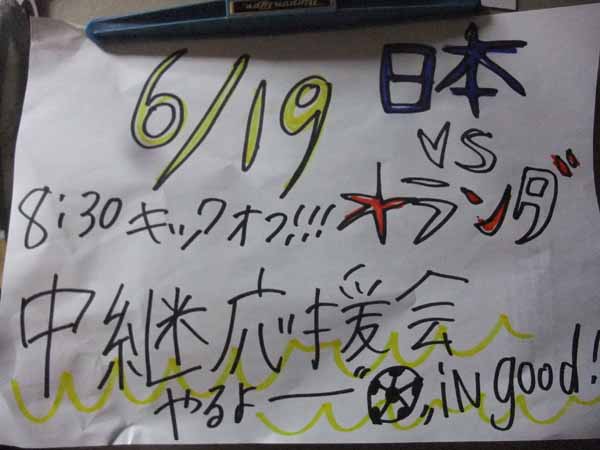 6/19
日本
vs
オランダ
8:30 キックオフ!!!
中継応援会
やるよー in good!